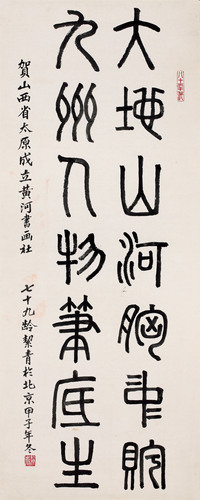 大地山河胸中貯
九州人物筆底生
賀山西省太原成立黃河書画社 七十九齡絜青於北京甲子年冬